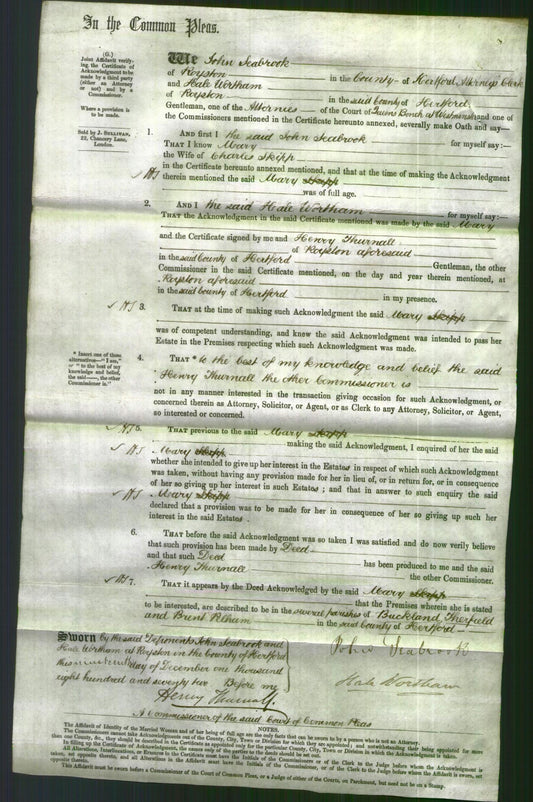 In the Common Pleas.
(G.)
Joint Affidavit verifying
the Certificate of
Acknowledgment to be
made by a third party
(either an Attorney
or not) and by a
Commissioner.
Where a provision is
to be made.
Sold by J. SULLIVAN,
22, Chancery Lane,
London.
We John Seabrook
of Royston in the County of Hertford Attorney's Clerk
and Hale Wortham
of Royston in the said County of Hertford
Gentleman, one of the Attornies of the Court of Queens Bench at Westminster and one of
the Commissioners mentioned in the Certificate hereunto annexed, severally make Oath and say—
1. And first I the said John Seabrook for myself say:—
THAT I know Mary
the Wife of Charles Skipp
in the Certificate hereunto annexed mentioned, and that at the time of making the Acknowledgment
therein mentioned the said Mary Skipp
was of full age.
2. AND I the said Hale Wortham for myself say:—
THAT the Acknowledgment in the said Certificate mentioned was made by the said Mary
and the Certificate signed by me and Henry Thurnall
of Royston aforesaid
in the said County of Hertford Gentleman, the other
Commissioner in the said Certificate mentioned, on the day and year therein mentioned, at
Royston aforesaid
in the said County of Hertford in my presence.
3. THAT at the time of making such Acknowledgment the said Mary Skipp
was of competent understanding, and knew the said Acknowledgment was intended to pass her
Estate in the Premises respecting which such Acknowledgment was made.
* Insert one of these
alternatives—"I am,"
or "to the best of my
knowledge and belief,
the said——, the other
Commissioner is."
4. THAT * to the best of my knowledge and belief the said
Henry Thurnall the other Commissioner is
not in any manner interested in the transaction giving occasion for such Acknowledgment, or
concerned therein as Attorney, Solicitor, or Agent, or as Clerk to any Attorney, Solicitor, or Agent,
so interested or concerned.
5. THAT previous to the said Mary Skipp
making the said Acknowledgment, I enquired of her the said
Mary Skipp
whether she intended to give up her interest in the Estates in respect of which such Acknowledgment
was taken, without having any provision made for her in lieu of, or in return for, or in consequence
of her so giving up her interest in such Estates; and that in answer to such enquiry the said
Mary Skipp
declared that a provision was to be made for her in consequence of her so giving up such her
interest in the said Estates.
6. THAT before the said Acknowledgment was so taken I was satisfied and do now verily believe
that such provision has been made by Deed
and that such Deed has been produced to me and the said
Henry Thurnall the other Commissioner.
7. THAT it appears by the Deed Acknowledged by the said Mary Skipp
that the Premises wherein she is stated
to be interested, are described to be in the several parishes of Buckland Therfield
and Brent Pelham in the said County of Hertford
Sworn by the said Deponents John Seabrook and
Hale Wortham at Royston in the County of Hertford
this nineteenth day of December one thousand
eight hundred and seventy two Before me
Henry Thurnall
A Commissioner of the said Court of Common Pleas
John Seabrook
Hale Wortham
NOTES.
The Affidavit of Identity of the Married Woman and of her being of full age are the only facts that can be sworn to by a person who is not an Attorney.
The Commissioners cannot take Acknowledgments out of the County, City, Town or Division for which they are appointed; and notwithstanding their being appointed for more
than one County, &c., they should be described in the Certificate as appointed only for the particular County, City, Town or Division in which the Acknowledgment is taken.
In filling up the Certificate of Acknowledgment, the names only of the parties to the deeds should be set out.